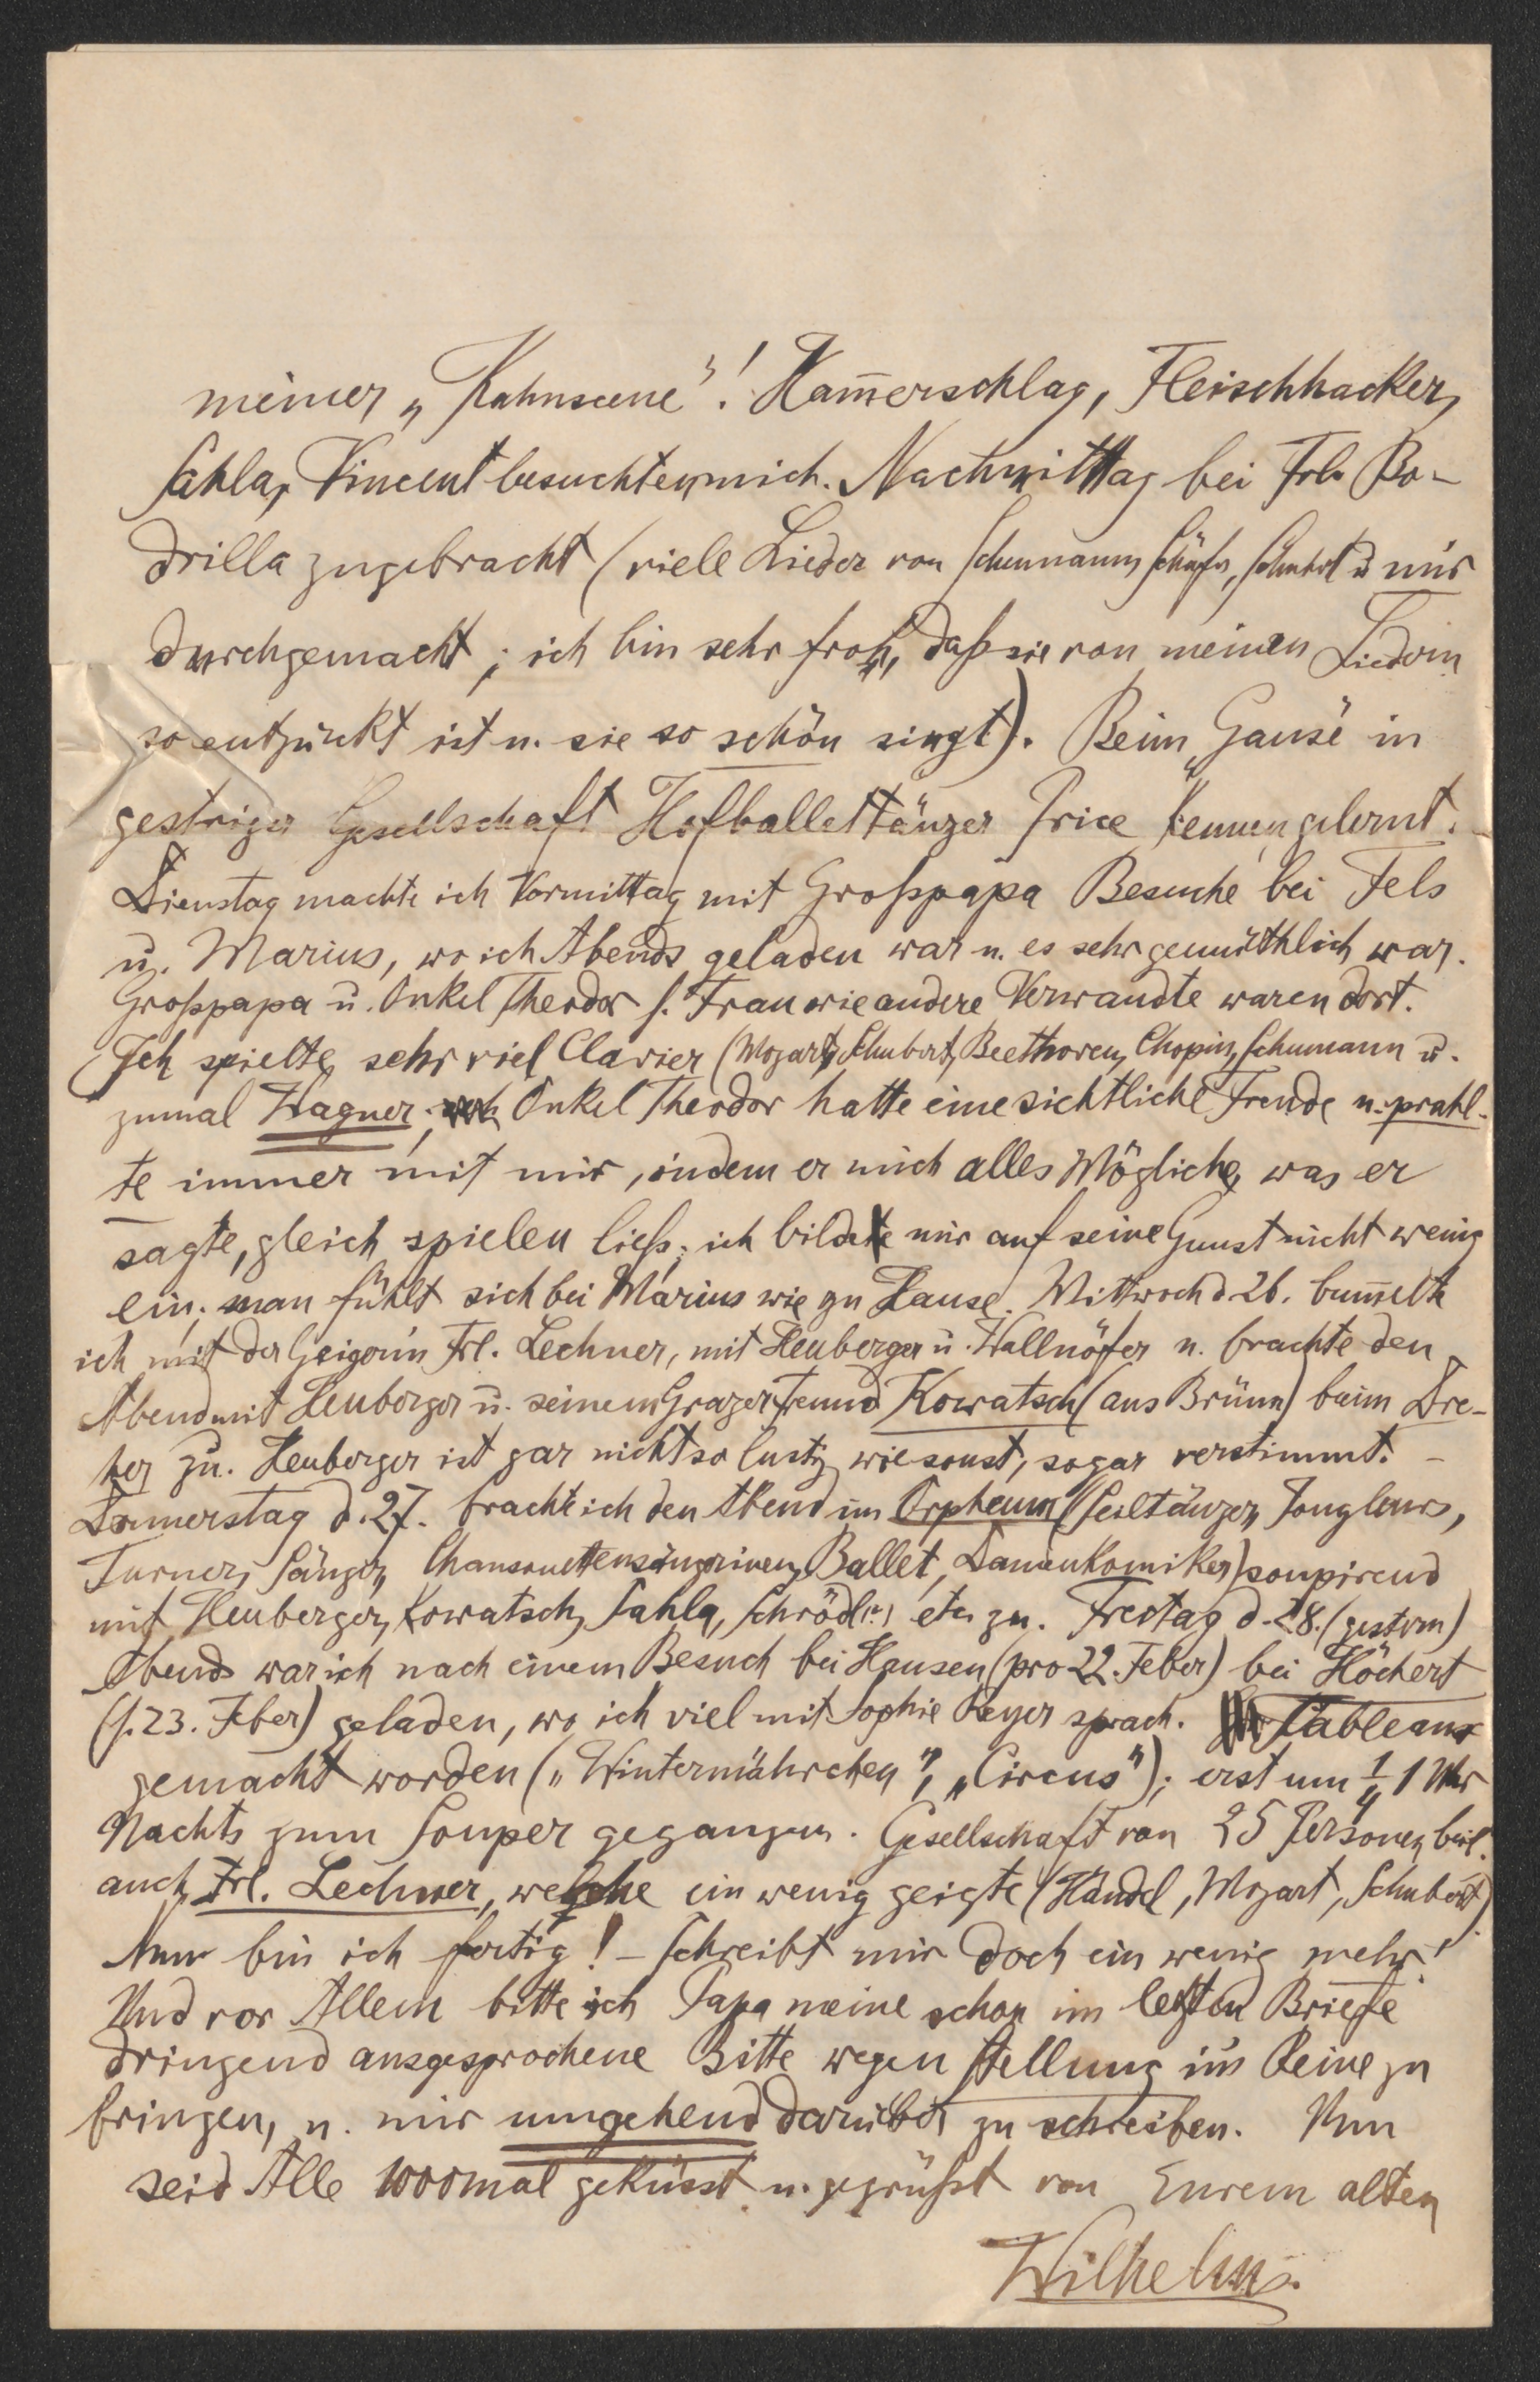 meiner „Kahnscene"! Kam̅erschlag, Fleischhacker,
Sahla, Vincent besuchten mich. Nachmittag bei Frl. Bo-
drilla zugebracht (viele Lieder von Schumann, Schäfer, Schubert u. mir
durchgemacht; ich bin sehr froh, daß sie von meinen Liedern
so entzückt ist u. sie so schön singt). Beim „Gause" in
gestriger Gesellschaft Hofballettänzer Price kennen gelernt. –
Dienstag machte ich Vormittag mit Großpapa Besuche bei Fels
u. Marius, wo ich Abends geladen war u. es sehr gemüthlich war.
Großpapa u. Onkel Theodor s. Frau wie andere Verwandte waren dort.
Ich spielte sehr viel Clavier (Mozart, Schubert, Beethoven, Chopin, Schumann u.
zumal Wagner; Onkel Theodor hatte eine sichtliche Freude u. prahl-
te immer mit mir, indem er mich alles Mögliche, was er
sagte, gleich spielen ließ; ich bildete mir auf seine Gunst nicht wenig
ein; man fühlt sich bei Marius wie zu Hause. Mittwoch d. 26. bum̅elte
ich mit der Geigerin Frl. Lechner, mit Heuberger u. Wallnöfer u. brachte den
Abend mit Heuberger u. seinem Grazer Freund Kowatsch (aus Brünn) beim Dre-
her zu. Heuberger ist gar nicht so lustig wie sonst, sogar verstimmt. –
Donnerstag d. 27. brachte ich den Abend im Orpheum (Seiltänzer, Jongleurs,
Turner, Sänger, Chansonettensängerinen, Ballet, Damenkomiker) soupirend
mit Heuberger, Kowatsch, Sahla, Schrödl(?) etc zu. Freitag d. 28. (gestern)
Abends war ich nach einem Besuch bei Hausen (pro 22. Feber) bei Höchert
(f. 23. Feber) geladen, wo ich viel mit Sophie Reyer sprach. Tableaux
gemacht worden („Wintermährchen", „Circus"); erst um ½ 1 Uhr
Nachts zum Souper gegangen. Gesellschaft von 25 Personen, beil.
auch Frl. Lechner, welche ein wenig geigte (Händel, Mozart, Schubert).
Nun bin ich fertig! – Schreibt mir doch ein wenig mehr!
Und vor Allem bitte ich Papa meine schon im letzten Briefe
dringend ausgesprochene Bitte wegen Stellung in's Reine zu
bringen, u. mir umgehend darüber zu schreiben. Nun
seid Alle 1000mal geküsst u. gegrüßt von Eurem alten
Wilhelm.